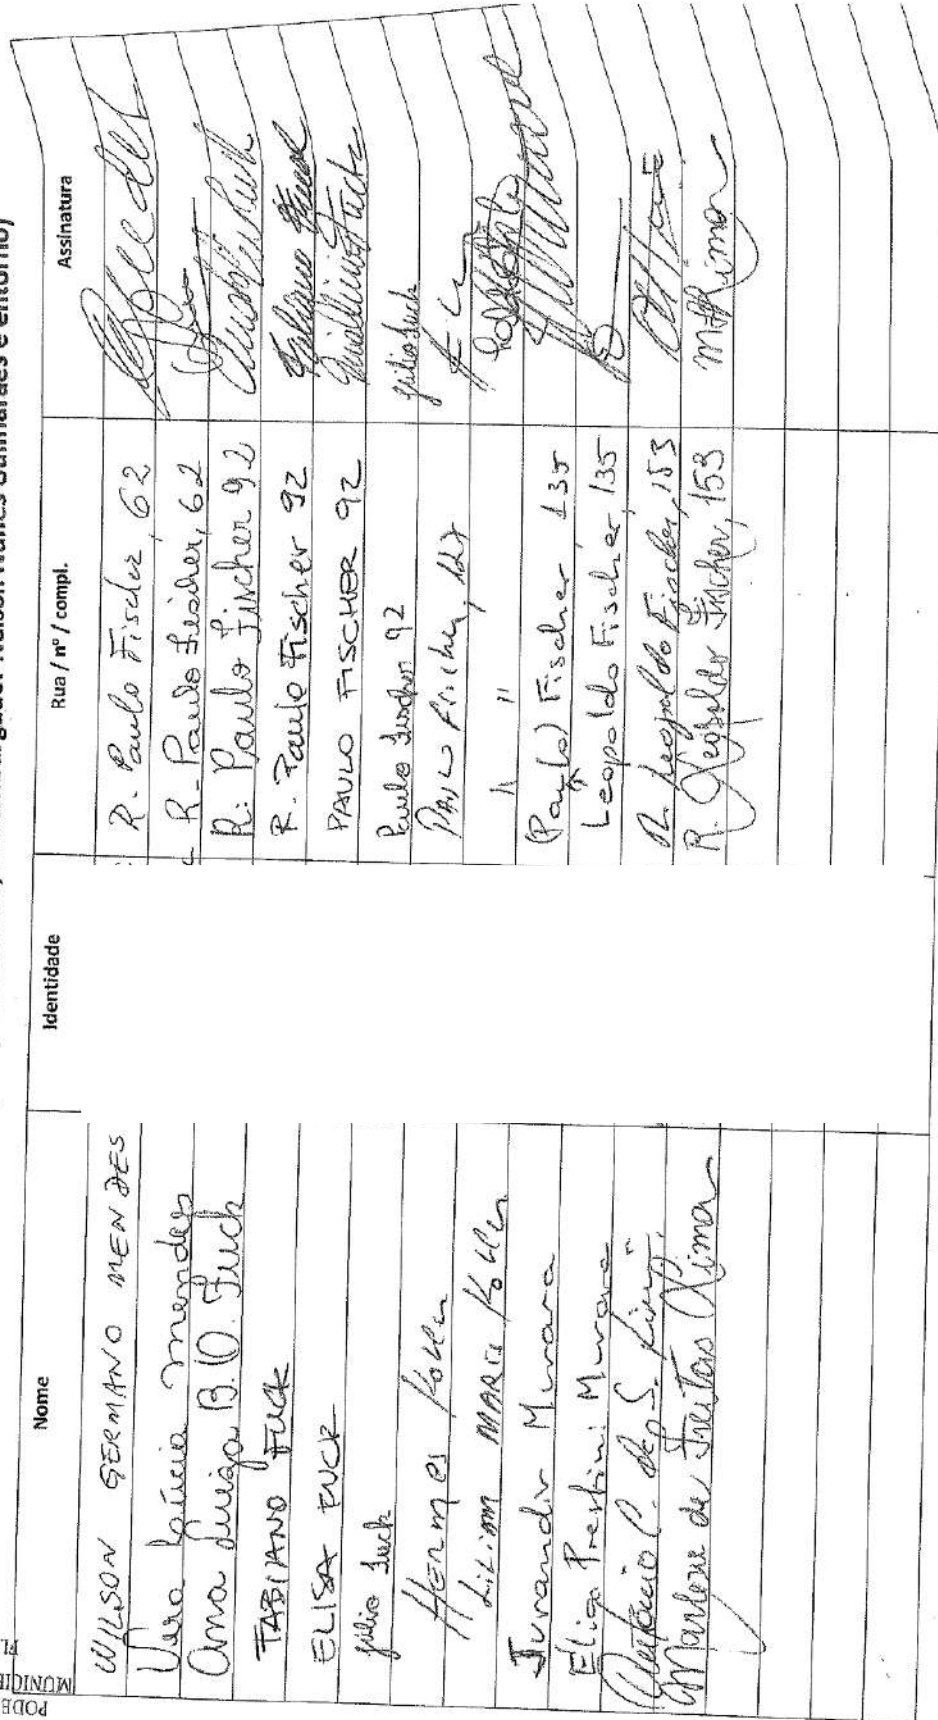 Nelson Nunes Guimarães e entorno)
PODE
MUNICIP
FL
Nome Identidade Rua / nº / compl. Assinatura
WILSON GERMANO MENDES R. Paulo Fischer, 62
Vera Lúcia Mendes R. Paulo Fischer, 62
Ana Luiza B. O. Fuck R: Paulo Fischer 92
FABIANO FUCK R. Paulo Fischer 92 Fabiano Fuck
ELISA FUCK PAULO FISCHER 92
Júlio Fuck Paulo Fischer 92 Júlio Fuck
Hermes Koller Paulo Fischer, 127
Lilian MARIA Koller " "
Jurandir Murara (Paulo) Fischer 135
Elisa Prestini Murara Leopoldo Fischer, 135
C. de S. Lima R. Leopoldo Fischer, 153
Marlene de Freitas Lima R. Leopoldo Fischer, 153 M Lima